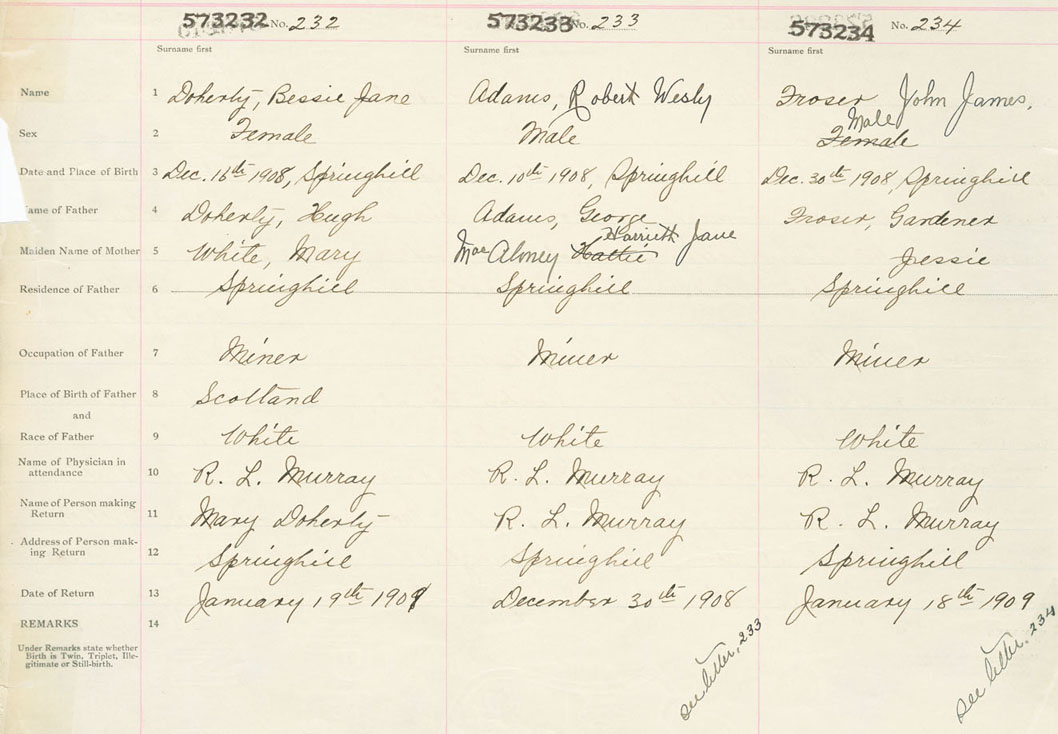 573232 No. 232 573233 No. 233 573234 No. 234
Surname first Surname first Surname first
Name 1 Doherty, Bessie Jane Adams, Robert Wesly Froser John James,
Male
Sex 2 Female Male Female
Date and Place of Birth 3 Dec. 16th 1908, Springhill Dec. 10th 1908, Springhill Dec. 30th 1908, Springhill
ame of Father 4 Doherty, Hugh Adams, George Froser, Gardener
Harrieth Jane
Maiden Name of Mother 5 White, Mary MacAloney Hattie Jessie
Residence of Father 6 Springhill Springhill Springhill
Occupation of Father 7 Miner Miner Miner
Place of Birth of Father 8 Scotland
and
Race of Father 9 White White White
Name of Physician in
attendance 10 R. L. Murray R. L. Murray R. L. Murray
Name of Person making
Return 11 Mary Doherty R. L. Murray R. L. Murray
Address of Person mak-
ing Return 12 Springhill Springhill Springhill
Date of Return 13 January 19th 1909 December 30th 1908 January 18th 1909
REMARKS 14
Under Remarks state whether
Birth is Twin, Triplet, Ille-
gitimate or Still-birth.
see letter, 233
see letter, 234